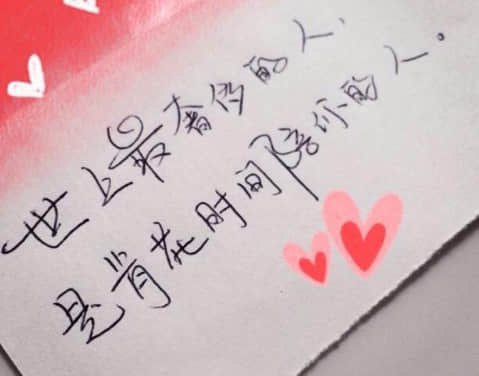 世上最奢侈的人,
是肯花时间陪你的人。